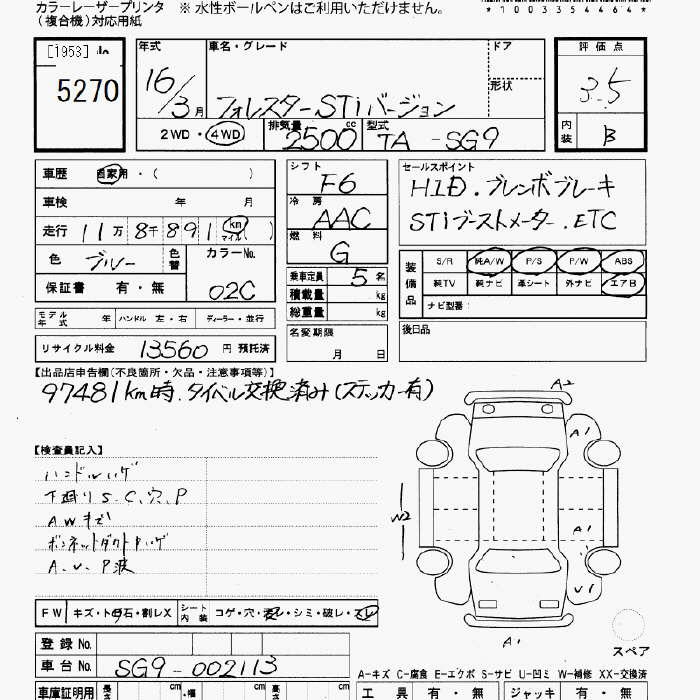 カラーレーザープリンタ ※ 水性ボールペンはご利用いただけません。
(複合機)対応用紙
*1003354464*
[1953]
5270
年式 車名・グレード ドア
16/3月 フォレスターSTiバージョン 形状
2WD・4WD 排気量 2500cc 型式 TA-SG9
評価点
3.5
内装 B
車歴 自家用・( )
車検 年 月
走行 11万8千891km マイル( )
色 ブルー 色替 カラーNo.
保証書 有・無 02C
モデル年式 年 ハンドル 左・右 ディーラー・並行
リサイクル料金 13560円 預託済
シフト F6
冷房 AAC
燃料 G
乗車定員 5名
積載量 kg
総重量 kg
名変期限
月 日
セールスポイント
HID.ブレンボブレーキ
STiブーストメーター.ETC
装備品 S/R 純A/W P/S P/W ABS
純TV 純ナビ 革シート 外ナビ エアB
ナビ型番:
後日品
【出品店申告欄(不良箇所・欠品・注意事項等)】
97481km時.タイベル交換済み(ステッカー有)
【検査員記入】
ハンドルハゲ
下廻りS.C.穴.P
AWキズ
ボンネットダクトPハゲ
A.U.P波
A2
A1
W2
A1
A1
スペア
FW キズ・トビ石・割レX シート内装 コゲ・穴・・シミ・破レ・スレ
登録No.
車台No. SG9-002113
A-キズ C-腐食 E-エクボ S-サビ U-凹ミ W-補修 XX-交換済
車庫証明用 長さ cm ・幅 cm 高さ cm
工具 有・無 ジャッキ 有・無